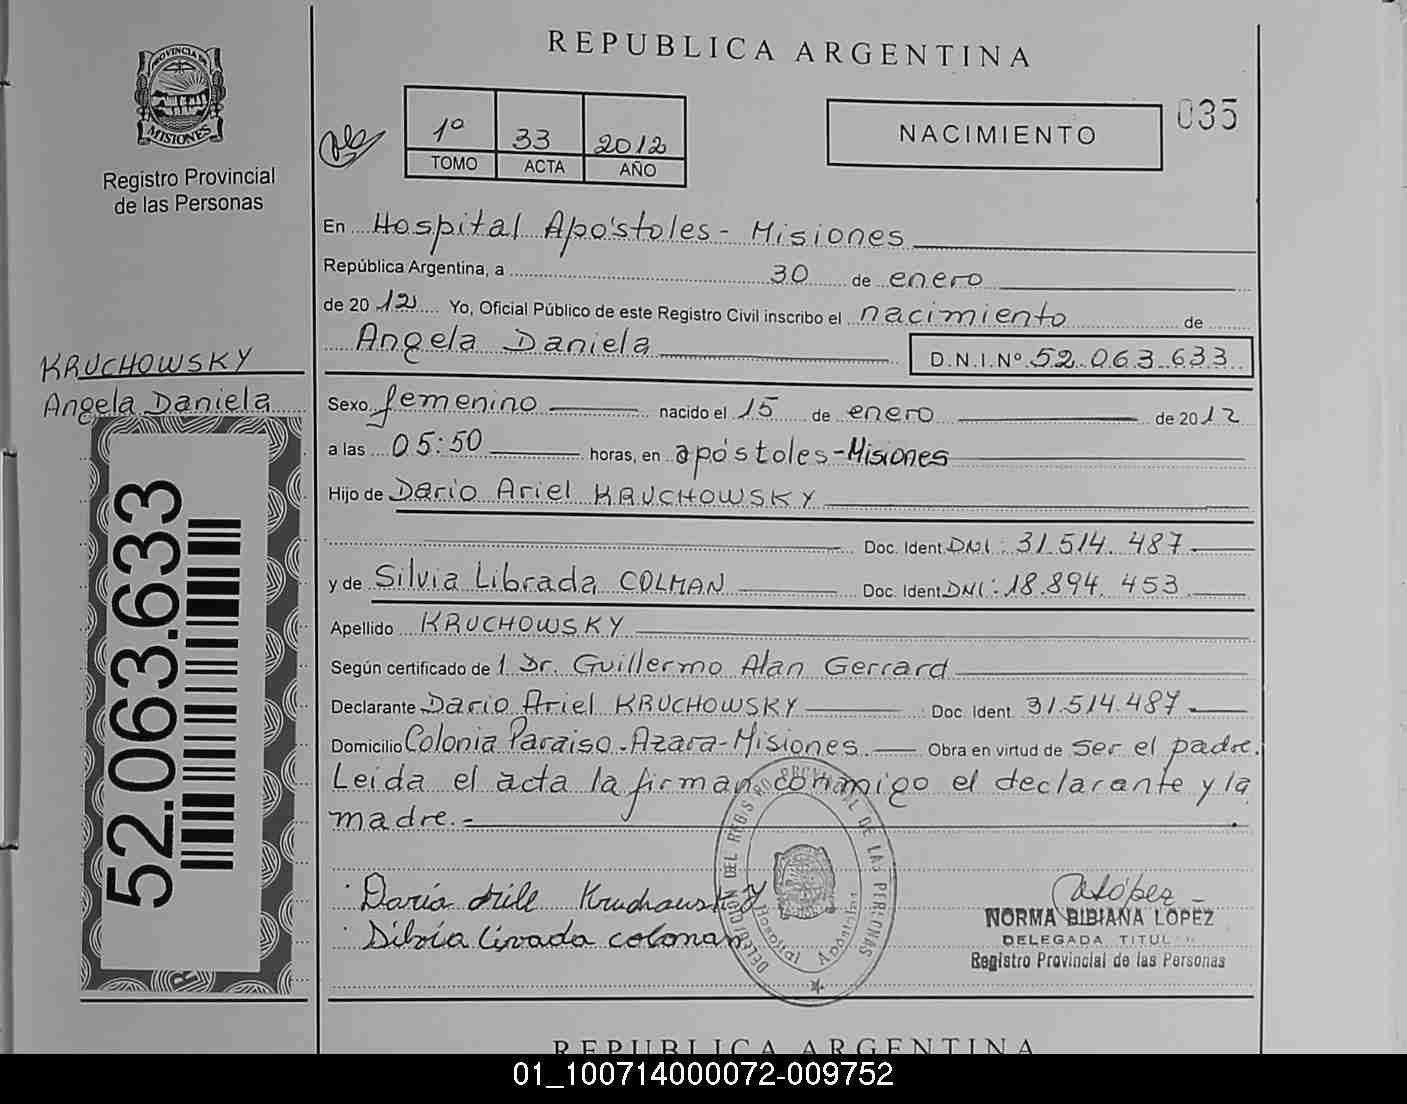 REPUBLICA ARGENTINA
PROVINCIA DE
MISIONES
Registro Provincial
de las Personas
1º 33 2012
TOMO ACTA AÑO
NACIMIENTO
035
En Hospital Apóstoles - Misiones
República Argentina, a 30 de enero
de 2012 Yo, Oficial Público de este Registro Civil inscribo el nacimiento de
Angela Daniela D.N.I.Nº 52.063.633
KRUCHOWSKY
Angela Daniela
52.063.633
Sexo femenino nacido el 15 de enero de 2012
a las 05:50 horas, en apóstoles-Misiones
Hijo de Dario Ariel KRUCHOWSKY
Doc. Ident. DNI: 31.514.487
y de Silvia Librada COLMAN Doc. Ident. DNI: 18.894.453
Apellido KRUCHOWSKY
Según certificado de 1 Dr. Guillermo Alan Gerrard
Declarante Dario Ariel KRUCHOWSKY Doc. Ident. 31.514.487
Domicilio Colonia Paraiso - Azara - Misiones Obra en virtud de ser el padre.
Leida el acta la firman conmigo el declarante y la
madre.-
Daria Kruchowsky
Silvia Livada coloman
DELEGACION DEL REGISTRO PROVINCIAL DE LAS PERSONAS
Hospital Apóstoles
NORMA BIBIANA LOPEZ
DELEGADA TITUL
Registro Provincial de las Personas
REPUBLICA ARGENTINA
01_100714000072-009752